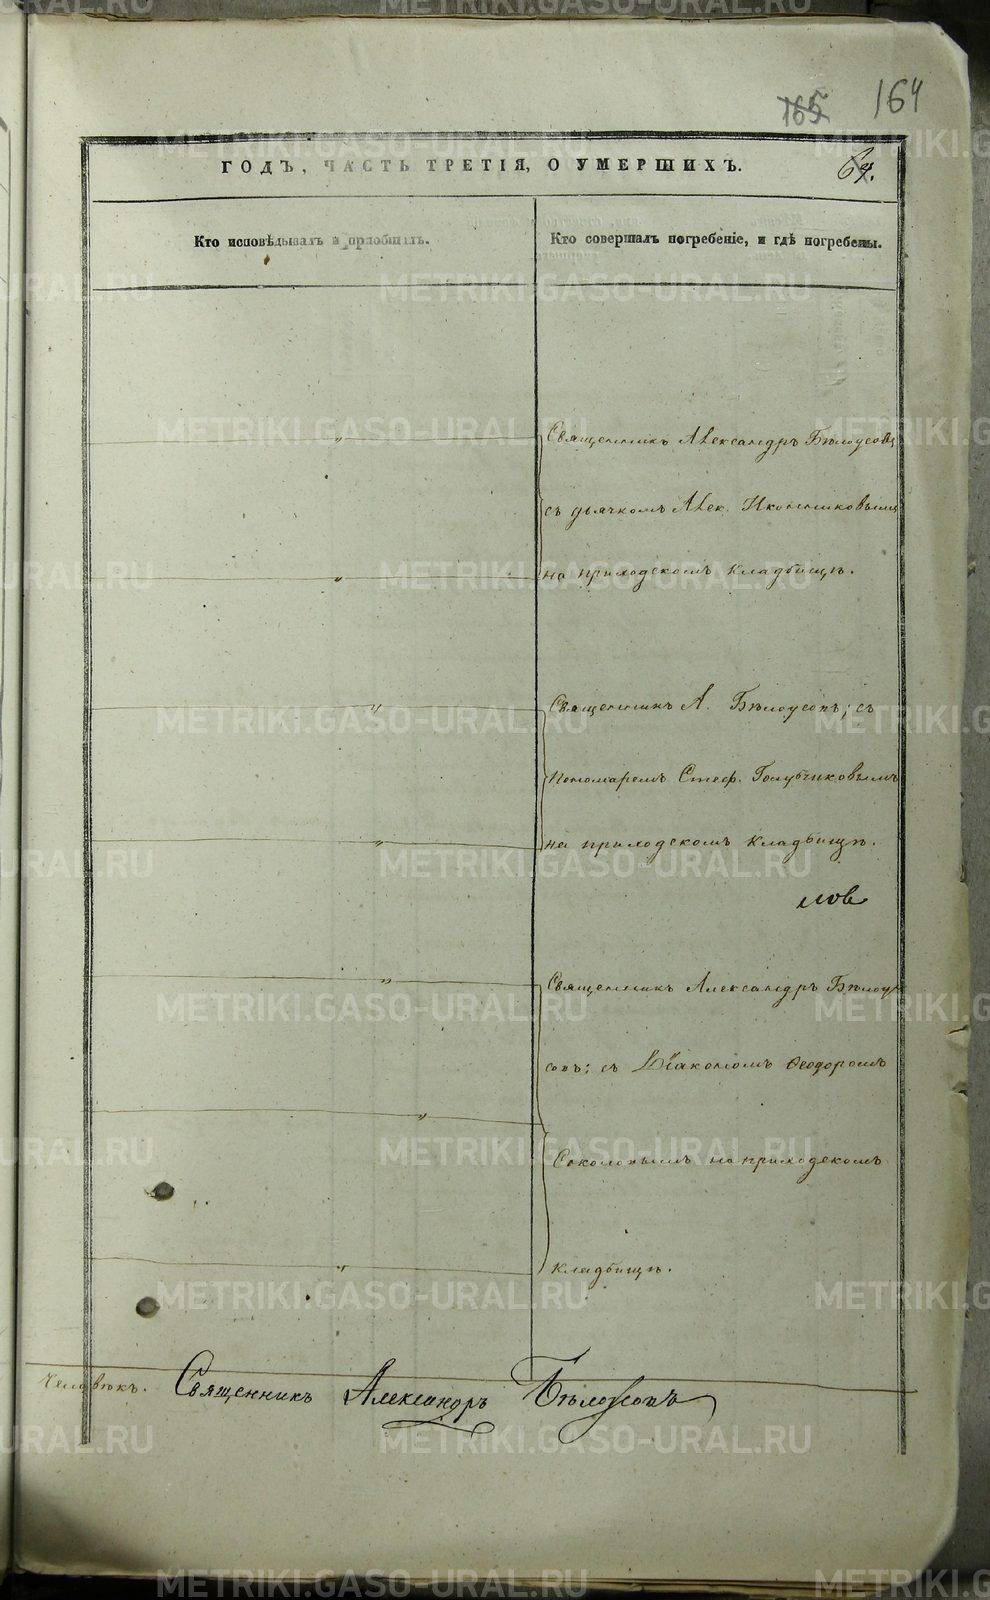 165 164
ГОДЪ, ЧАСТЬ ТРЕТІЯ, О УМЕРШИХЪ. 64.
Кто исповѣдывалъ и пріобщалъ.
Кто совершалъ погребеніе, и гдѣ погребены.
Священникъ Александръ Бѣлоусовъ
съ дьячкомъ Алек. Иконниковымъ
на приходскомъ кладбищѣ.
Священникъ А. Бѣлоусовъ; съ
Пономаремъ Стеф. Голубчиковымъ
на приходскомъ кладбищѣ.
лов
Священникъ Александръ Бѣлоу
совъ; съ Діакономъ Ѳеодоромъ
Соколовымъ на приходскомъ
кладбищѣ.
Человѣкъ. Священникъ Александръ Бѣлоусовъ
METRIKI.GASO-URAL.RU